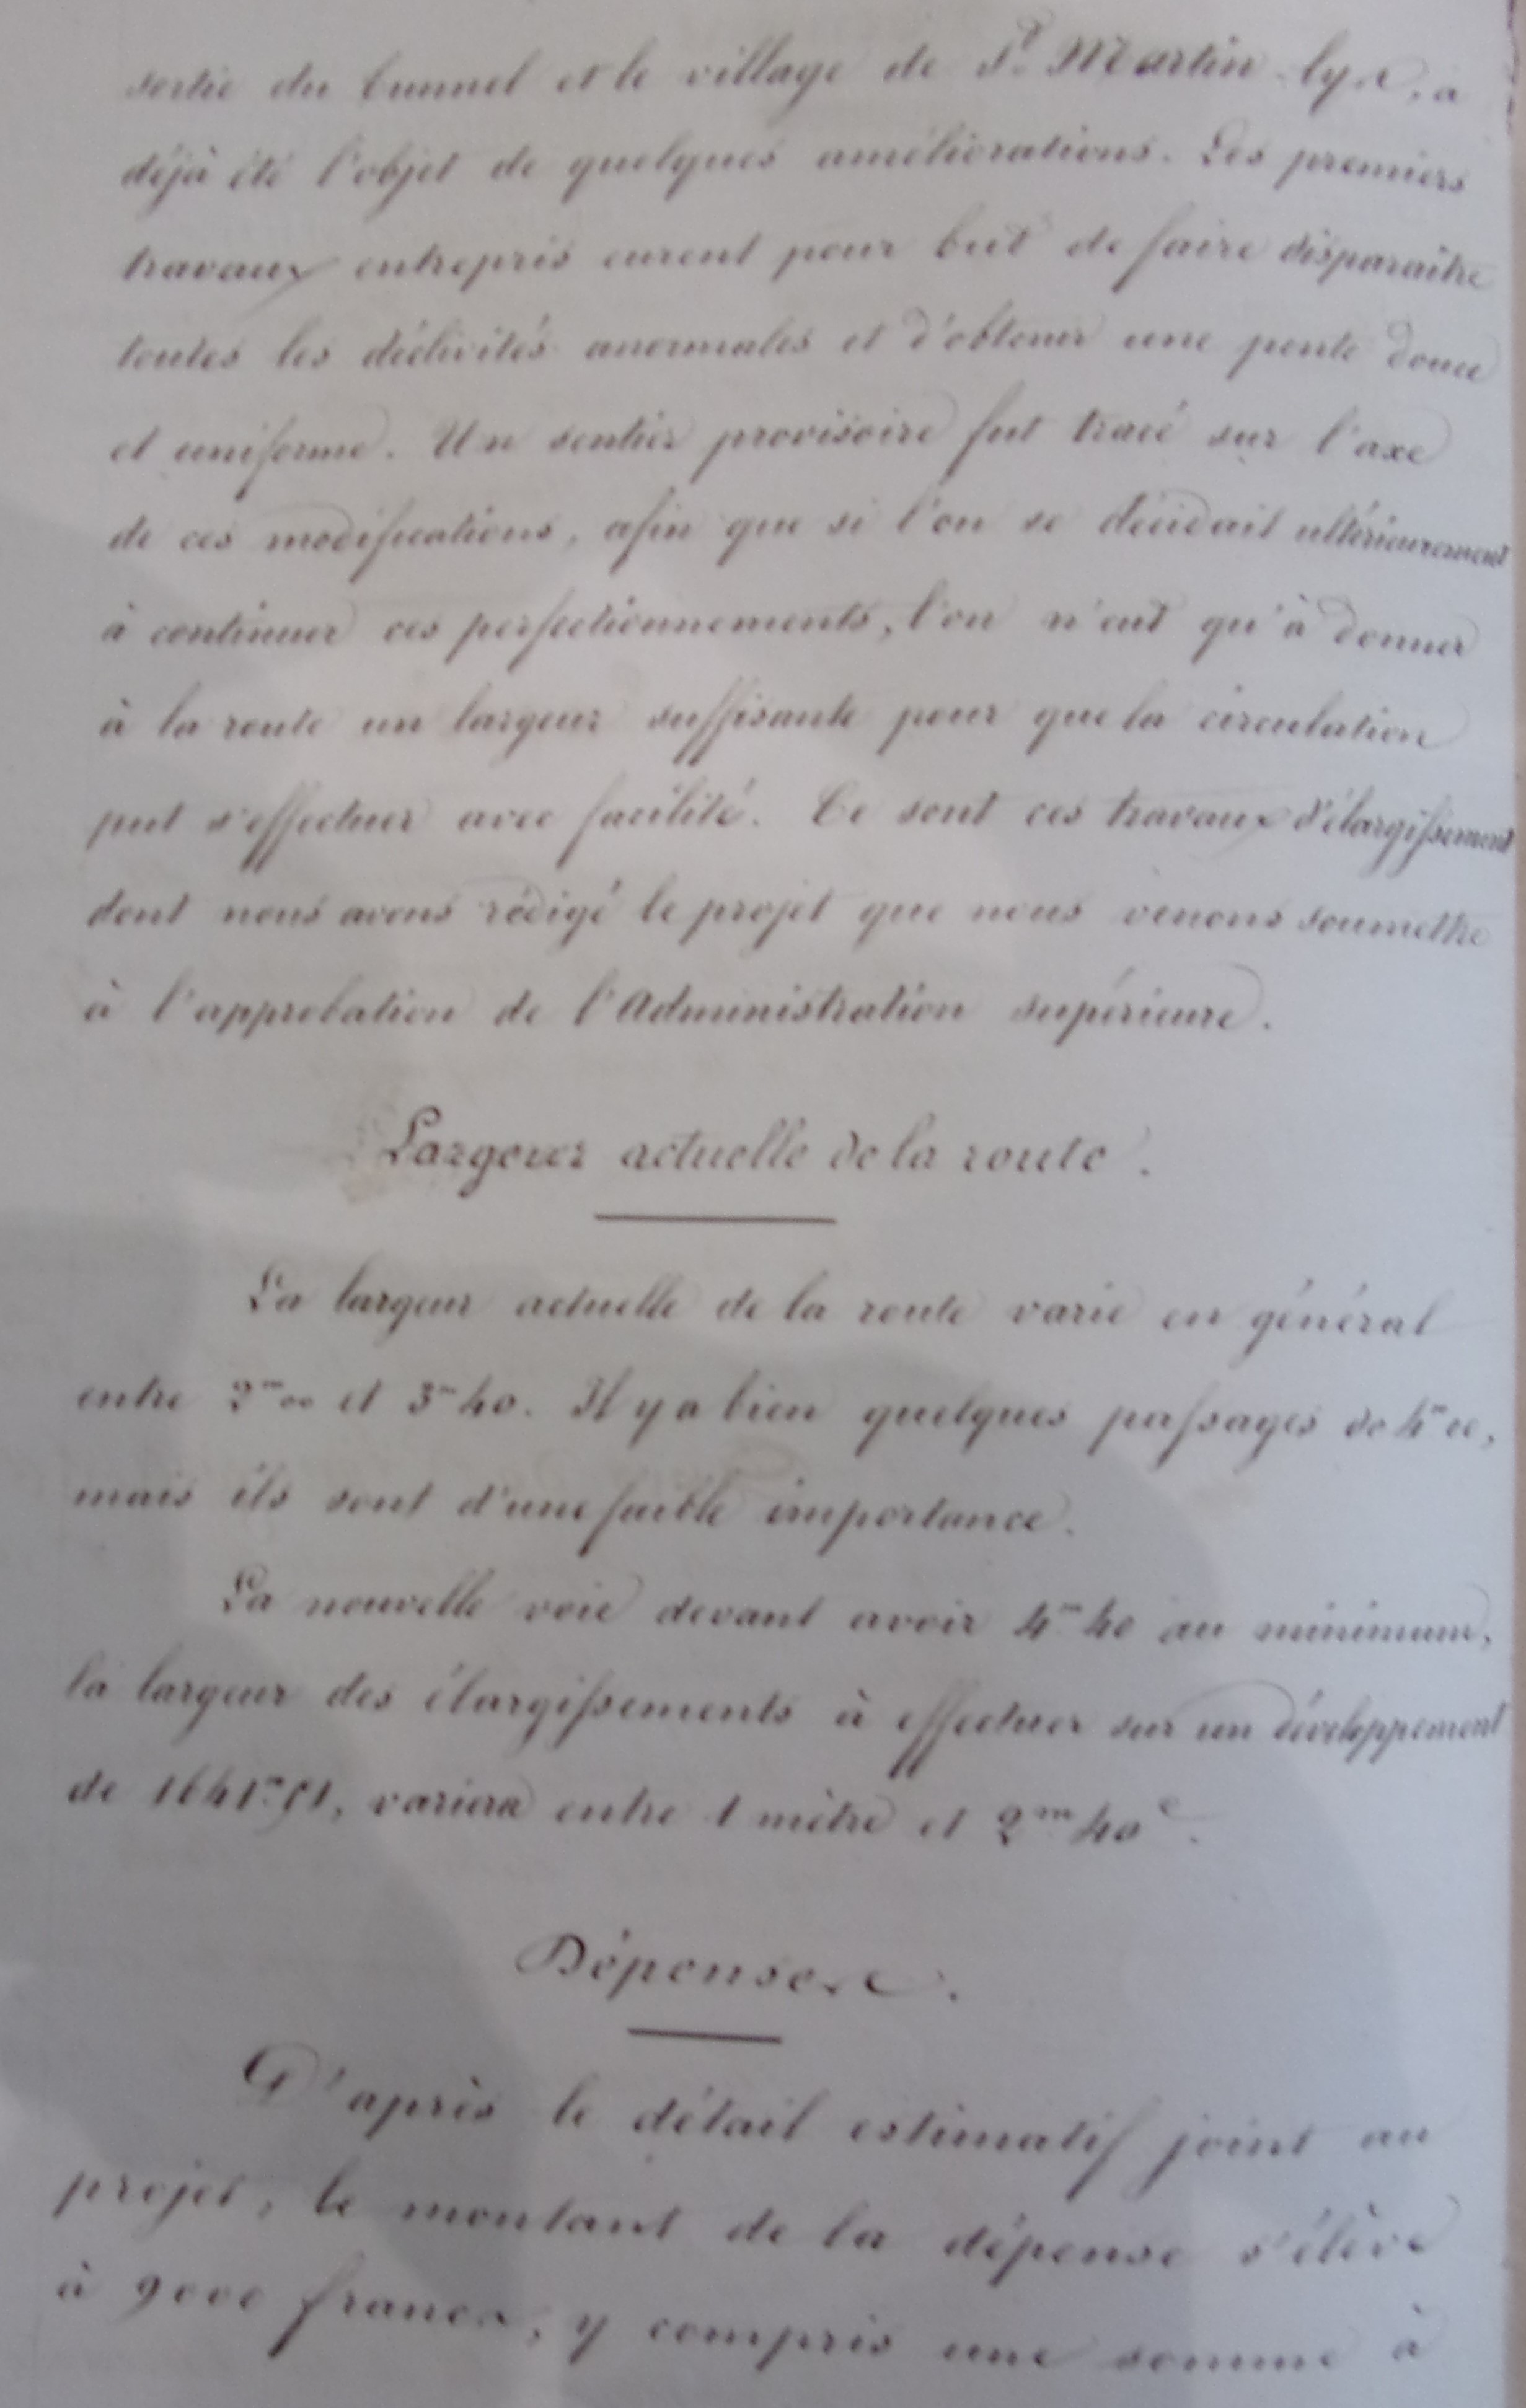 sortie du tunnel et le village de St Martin lys, a
déjà été l'objet de quelques améliorations. Les premiers
travaux entrepris eurent pour but de faire disparaitre
toutes les déclivités anormales et d'obtenir une pente douce
et uniforme. Un sentier provisoire fut tracé sur l'axe
de ces modifications, afin que si l'on se décidait ultérieurement
à continuer ces perfectionnements, l'on n'eut qu'à donner
à la route un largeur suffisante pour que la circulation
put s'effectuer avec facilité. Ce sont ces travaux d'élargissement
dont nous avons rédigé le projet que nous venons soumettre
à l'approbation de l'Administration supérieure.
Largeur actuelle de la route.
La largeur actuelle de la route varie en général
entre 2m00 et 3m40. Il y a bien quelques passages de 4m00,
mais ils sont d'une faible importance.
La nouvelle voie devant avoir 4m40 au minimum,
la largeur des élargissements à effectuer sur un développement
de 1641m51, variera entre 1 mètre et 2m40c.
Dépenses.
D'après le détail estimatif joint au
projet, le montant de la dépense s'élève
à 9000 francs, y compris une somme à